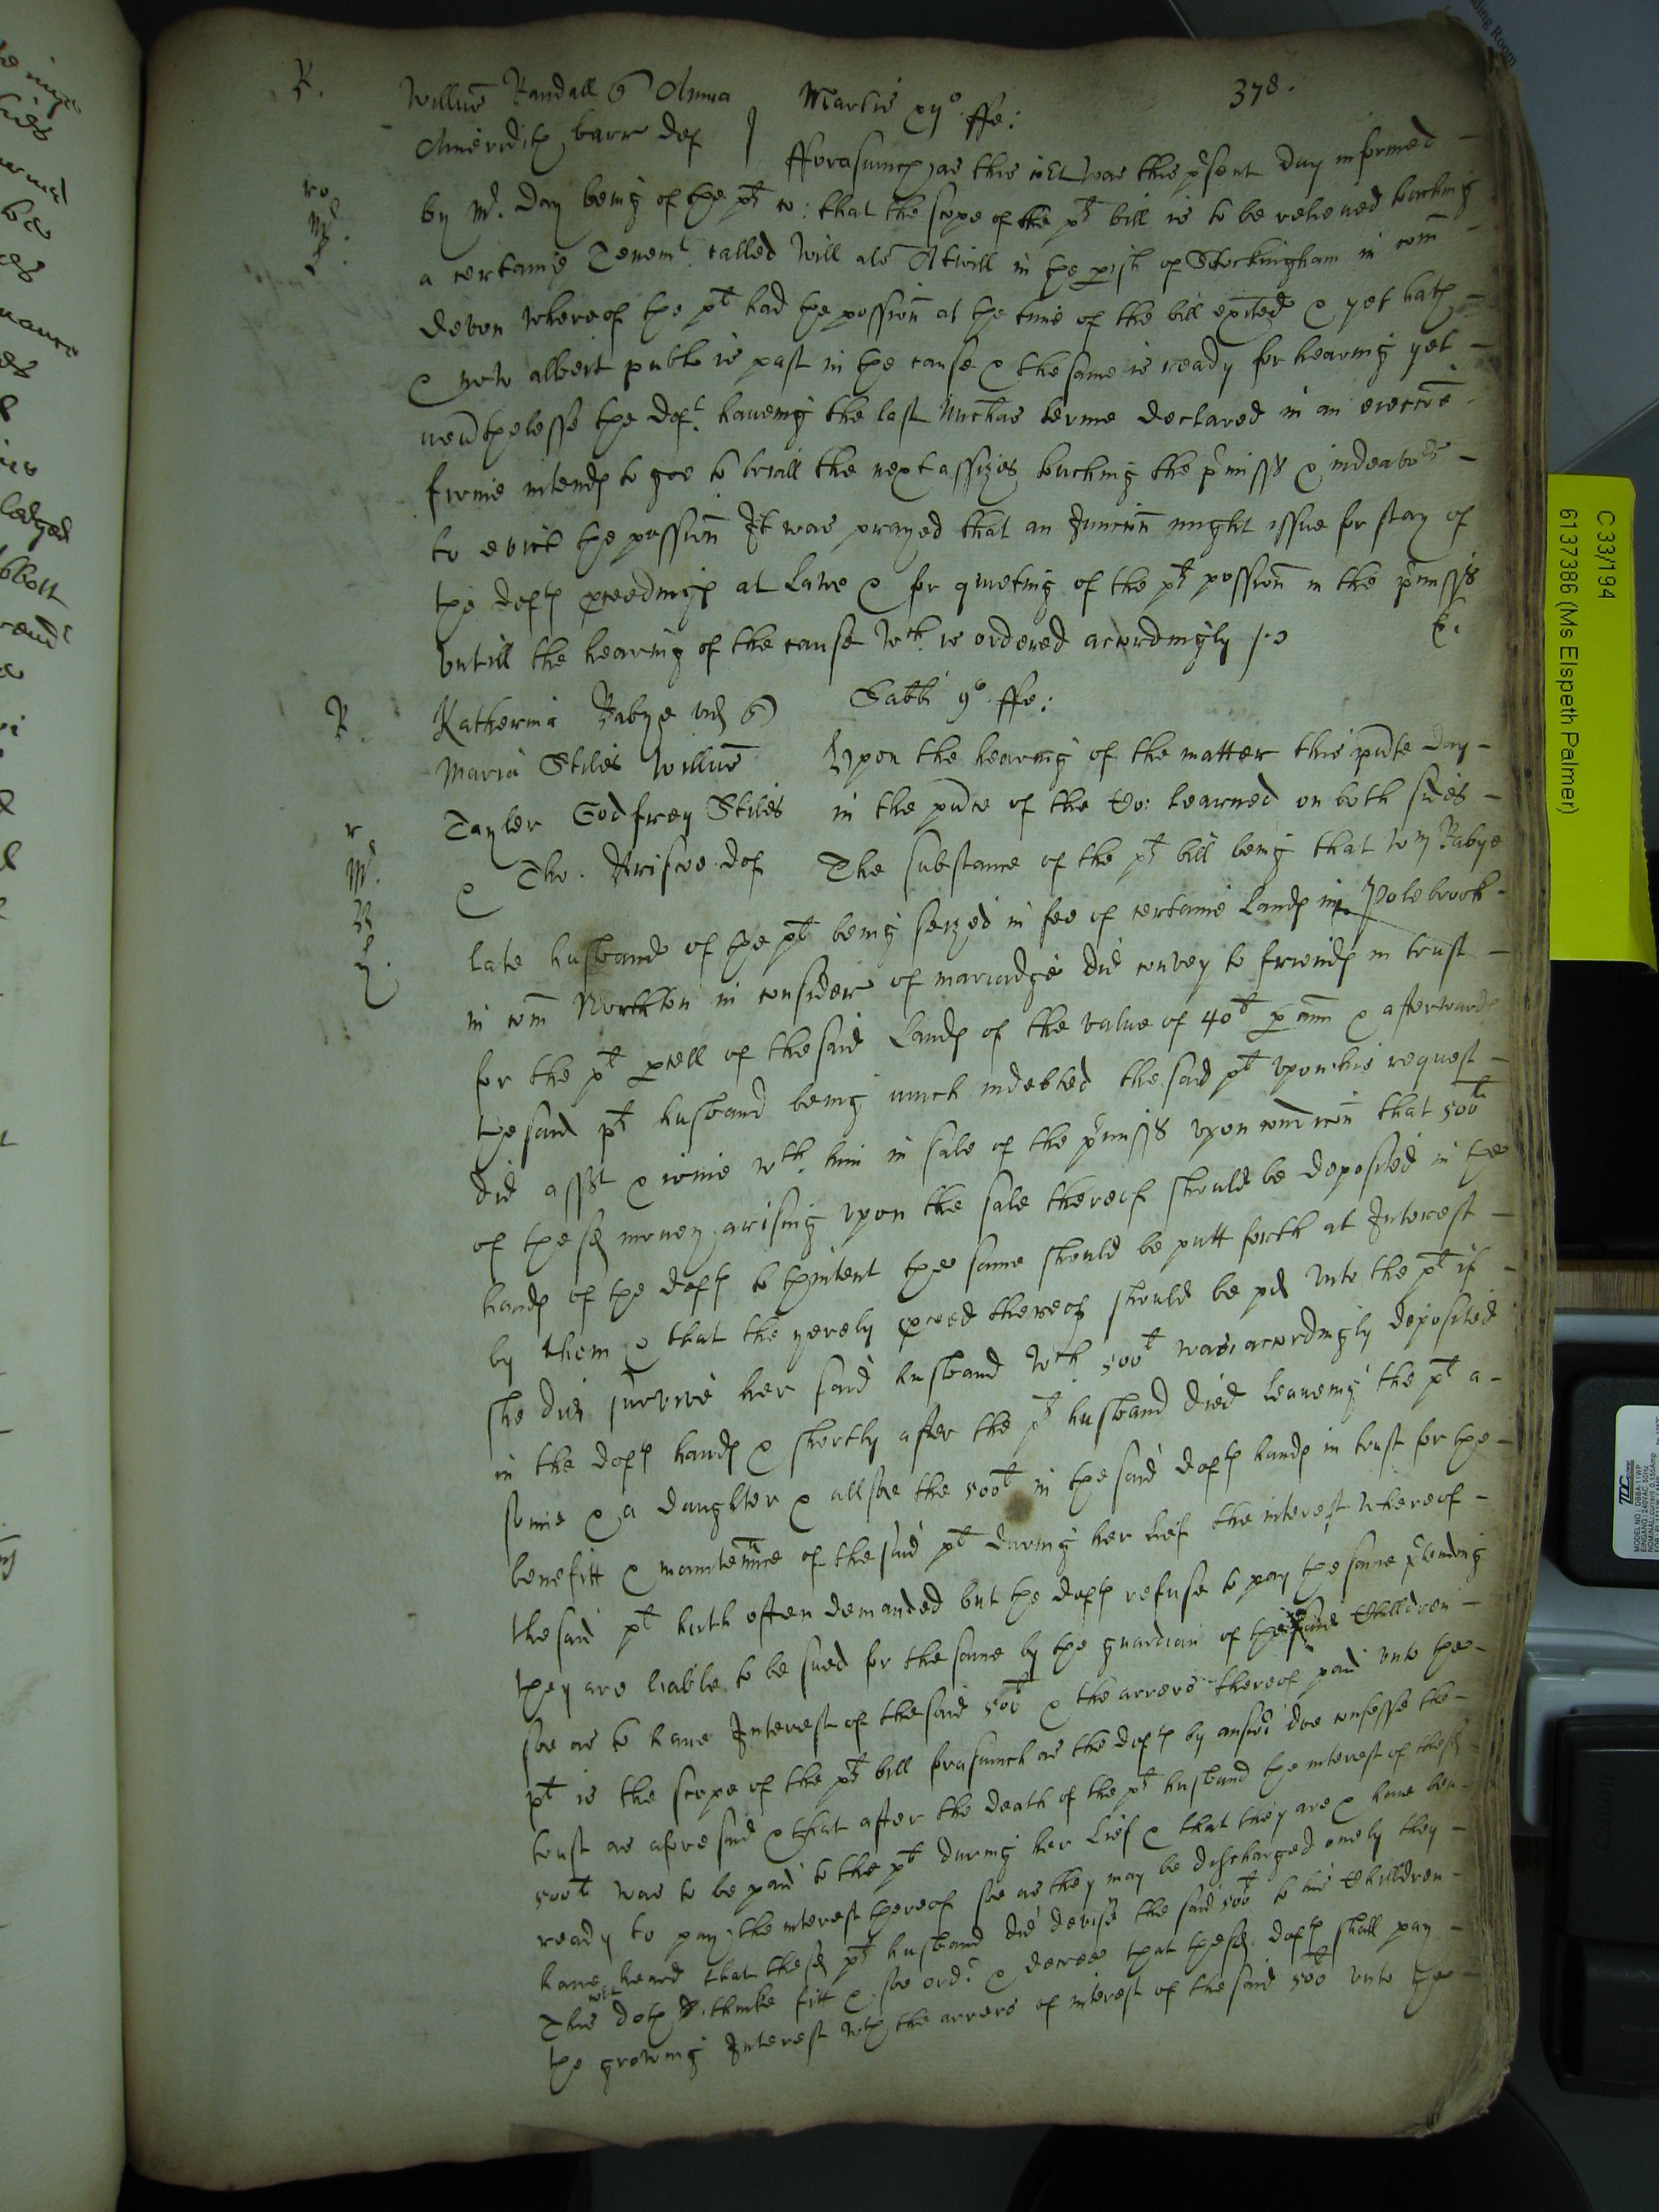 378.
R.
Willus Randall q Anna Martis xijo ffe:
Ameridith barr def fforasmuch as this Cot was this pͬsent day informed
by Mr. Day being of the plts co: that the scope of the plts bill is to be releived touching
a certaine Tenemt. called Will als Atwill in the pish of Stockingham in com
Devon whereof the plt had the possion at the time of the bill exited & yet hath
& now albeit publc is past in the cause & the same is ready for hearing yet
nevthelesse the deft. haveing the last Michas terme declared in an eieccoe
firme intends to goe to triall the next assizes touching the pͬmisss & indeavors
to evict the possion It was prayed that an Iunccon might issue for stay of
the defts pceedings at Lawe & for quieting of the plts possion in the pͬmisss
untill the hearing of the cause wch. is ordered accordingly
R.
Katherina Rabye vid q Sabbi 9o. ffe:
Maria Stiles Willus Upon the hearing of the matter this pnte day
Tayler Godfrey Stiles in the pnce of the Co: learned on both sides
& Tho. Briscoe def The substance of the plts bill being that Wm Rabye
late husband of the plt being seized in fee of certaine lands in Polebrook
in com Northton in consideracon of mariadge did convey to friends in trust
for the plt pcell of the said Lands of the value of 40l p ann & afterwards
the said plts husband being much indebted the said plt upon his request
did asst & ioine wth. him in sale of the pͬmisss upon condicon that 500l
of the sd money arising upon the sale thereof should be deposited in the
hands of the defts to thintent the same should be putt forth at Interest
by them & that the yerely pceed thereof should be pd unto the plt if
she did survive her said husband wch. 500l was accordingly deposited
in the defts hands & shortly after the plts husband died leaveing the plt a
sonne & a daughter & allsoe the 500l in the said defts hands in trust for the
benefitt & maintennce of the said plt during her lief the interest whereof
the said plt hath often demanded but the defts refuse to pay the same pͬtending
they are liable to be sued for the same by the guardian of the said Children
soe as to have Interest of the said 500l & the arrers thereof paid unto the
plt is the scope of the plts bill forasmuch as the defts by answer doe confesse the
trust as aforesaid & that after the death of the plts husband the interest of the sd
500l was to be paid to the plt during her lief & that they are & have ben
ready to pay the interest thereof soe as they may be discharged onely they
have heard that the sd plts husband did devise the said 500l to his Children
This Cot doth thinke fitt & soe ord. & decree that the sd defts shall pay
the growing Interest wth the arrers of interest of the said 500l unto the
C 33/194
6137386 (Ms Elspeth Palmer)